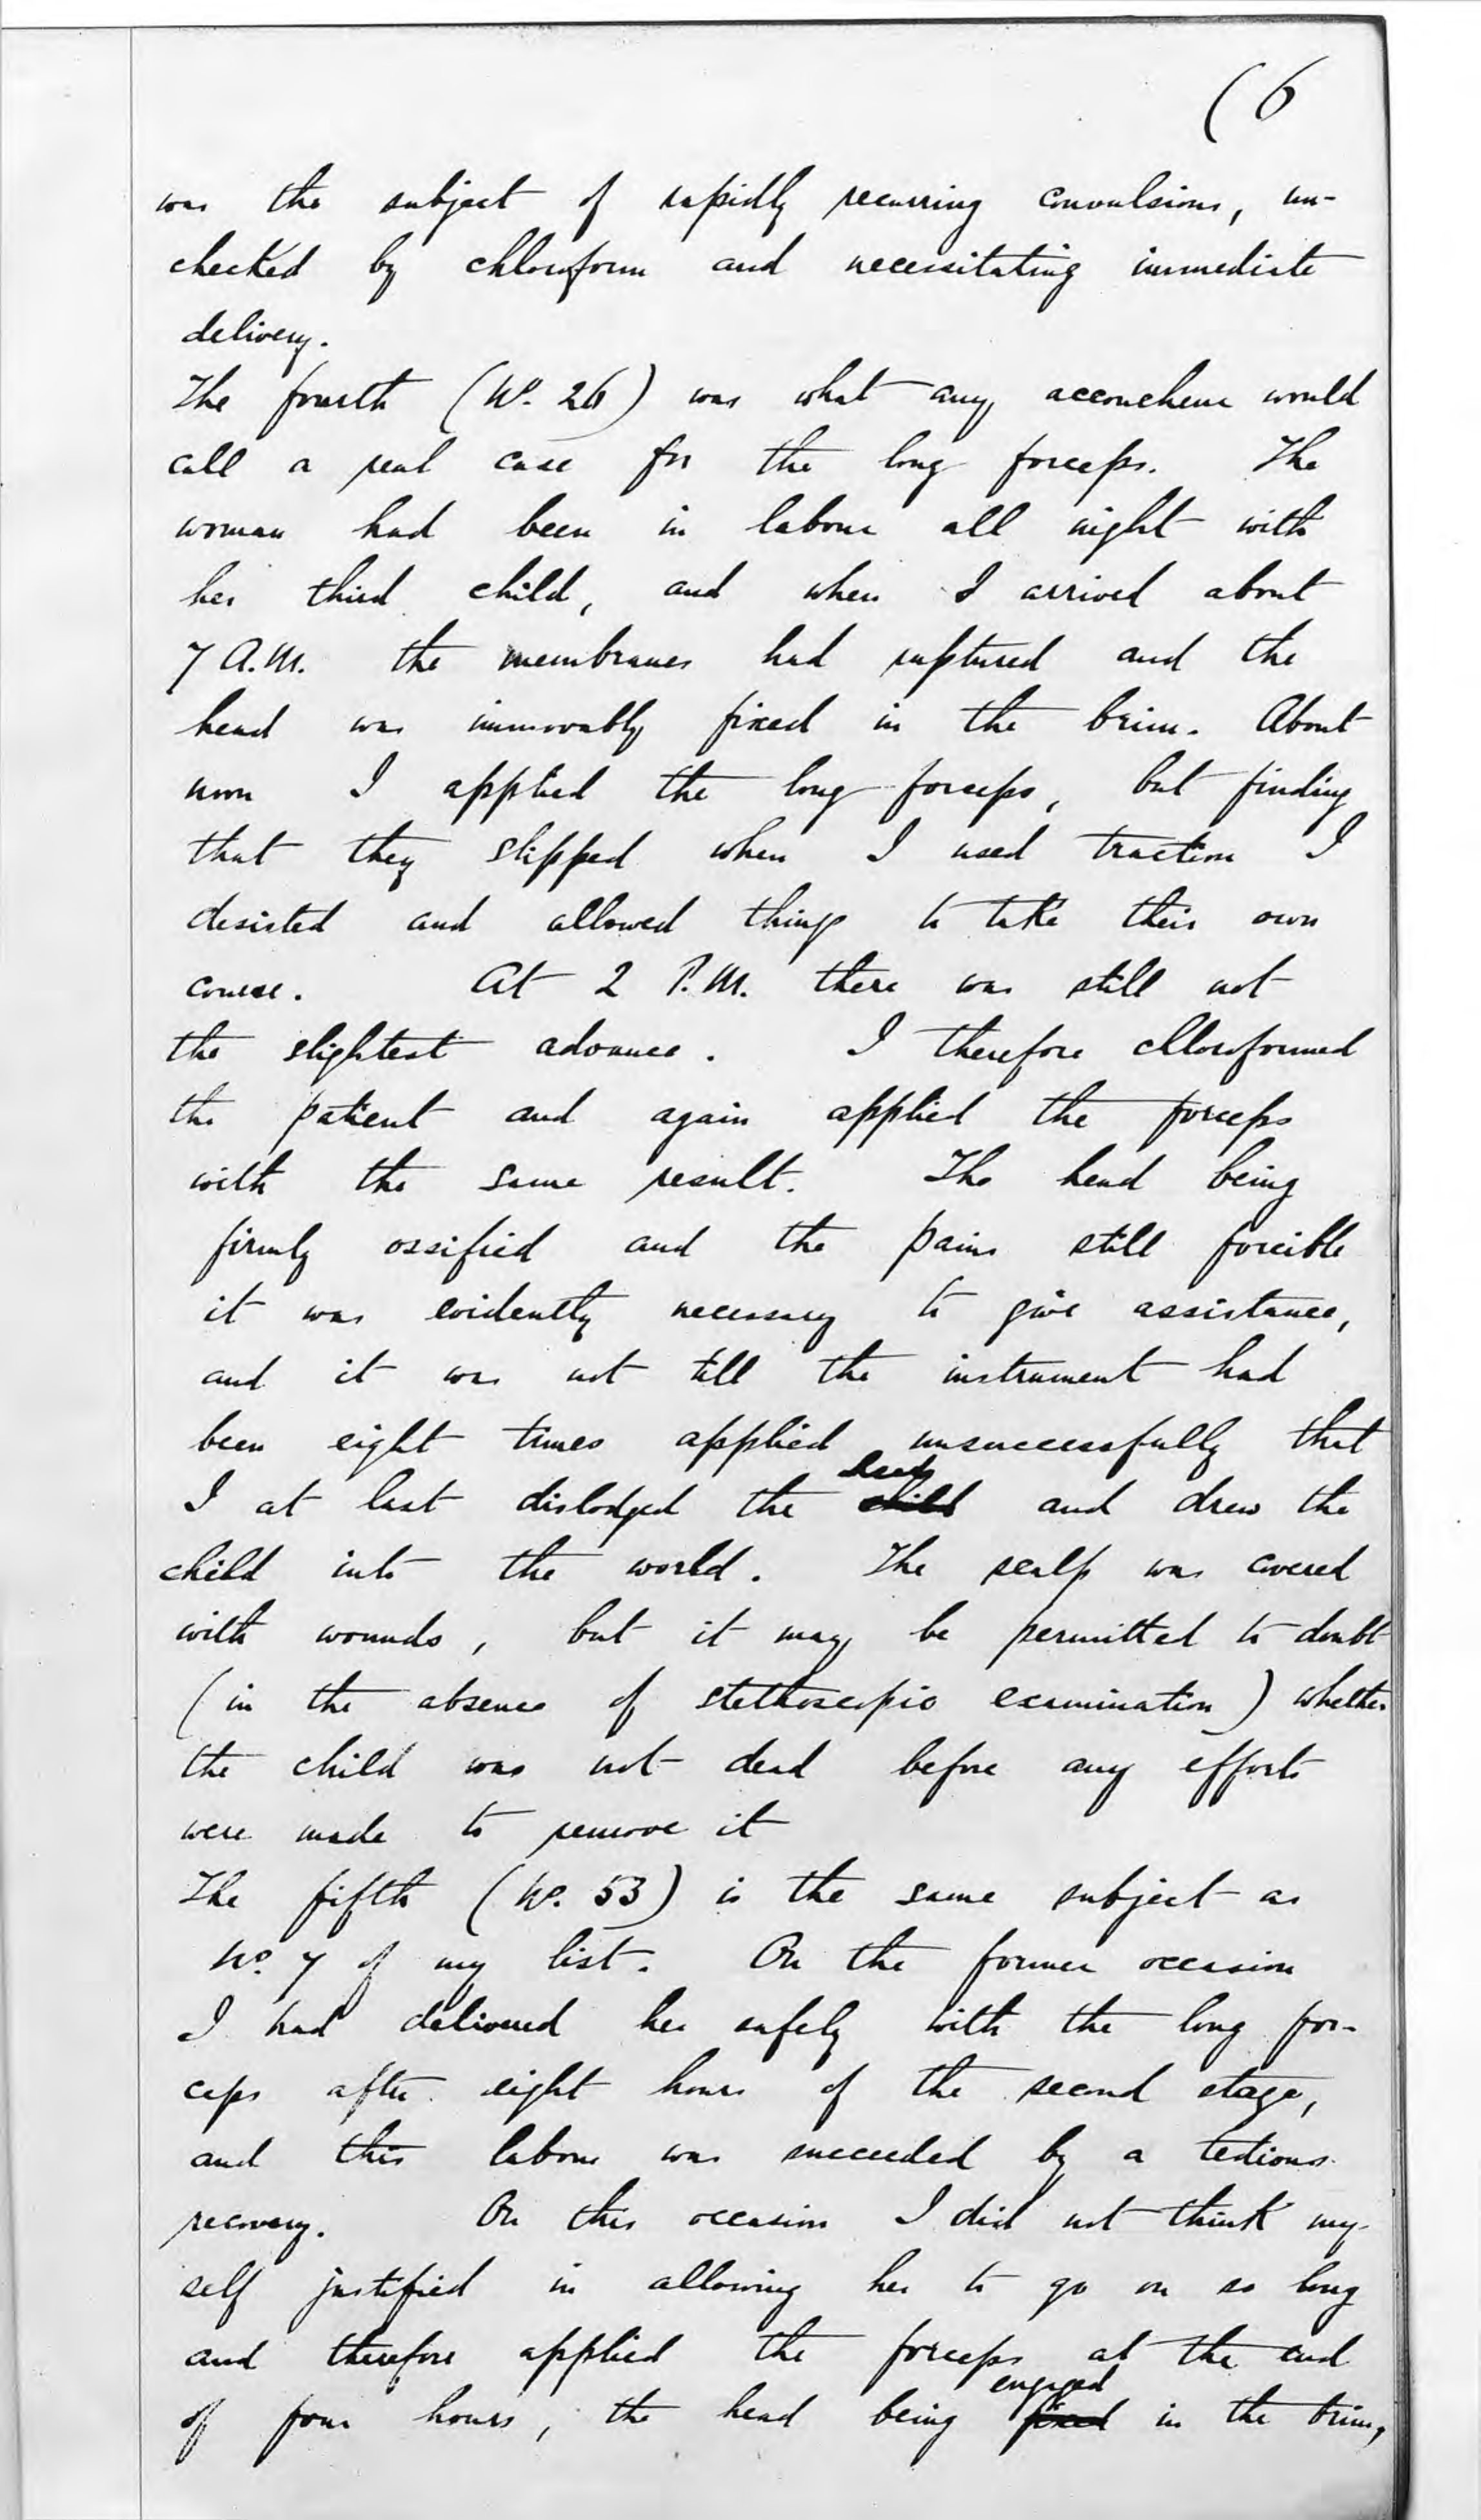 (6
was the subject of rapidly recurring convulsions, un-
checked by chloroform and necessitating immediate
delivery.
The fourth (No. 26) was what any accoucheur would
call a real case for the long forceps. The
woman had been in labour all night with
her third child, and when I arrived about
7 A.M. the membranes had ruptured and the
head was immovably fixed in the brim. About
noon I applied the long forceps, but finding
that they slipped when I used traction I
desisted and allowed things to take their own
course. At 2 P.M. there was still not
the slightest advance. I therefore chloroformed
the patient and again applied the forceps
with the same result. The head being
firmly ossified and the pains still forcible
it was evidently necessary to give assistance,
and it was not till the instrument had
been eight times applied unsuccessfully that
head
I at last dislodged the child and drew the
child into the world. The scalp was covered
with wounds, but it may be permitted to doubt
(in the absence of stethoscopic examination) whether
the child was not dead before any efforts
were made to remove it
The fifth (No. 53) is the same subject as
No. 7 of my list. On the former occasion
I had delivered her safely with the long for-
ceps after eight hours of the second stage,
and this labour was succeeded by a tedious
recovery. On this occasion I did not think my-
self justified in allowing her to go on so long
and therefore applied the forceps at the end
engaged
of four hours, the head being fixed in the brim,